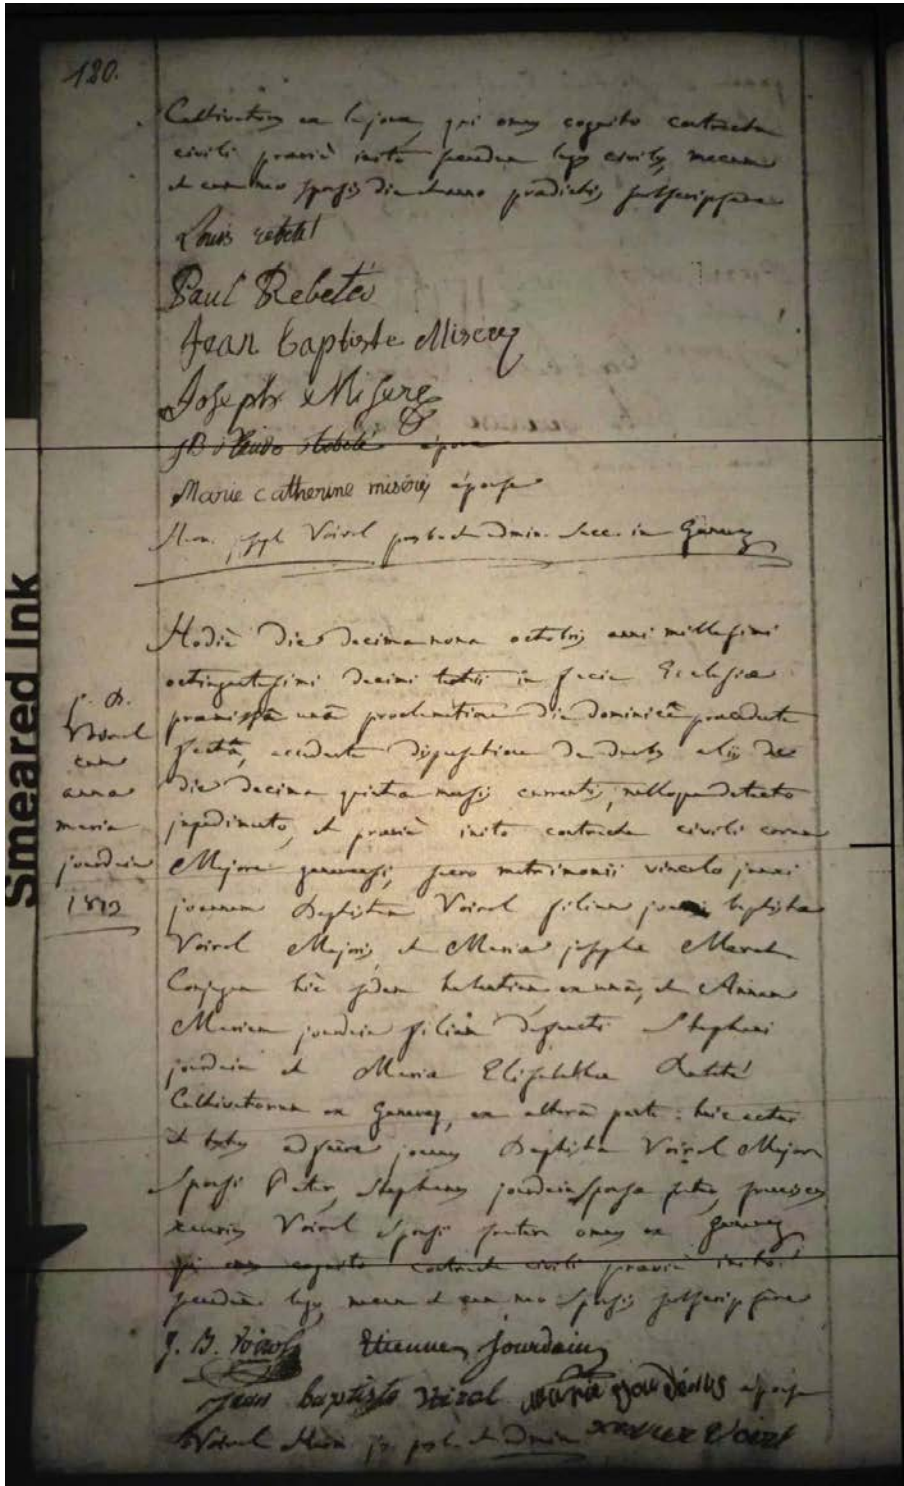 120.
Cultivatores ex lajoux, qui omnes cognito contractu
civili praeviè inito secundum leges civiles, mecum
et cum neo sponsis die et anno praedictis subscripsere
Louis rebetel
Paul Rebetéz
Jean baptiste Miserez
Joseph Miserez
époux
Marie catherine miserez épouse
Voirol et admin. succ. in Genevez
Hodiè die decima nona octobris anni millesimi
octingentesimi decimi tertii in facie Ecclesiae
praemissâ unâ proclamatione die dominicâ praecedente
factâ, accedente dispensatione de duabus aliis de
die decima quinta mensis currentis, nulloque detecto
impedimento, et praeviè inito contractu civili coram
Majore genevensi, sacro matrimonii vinculo junxi
joannem Baptistam Voirol filium joannis baptistae
Voirol Majoris, et Mariae josephae Marat
Conjugum hic habitantium ex unâ, et Annam
Mariam jourdain filiam defuncti Stephani
jourdain et Mariae Elisabethae
Cultivatorum ex Genevez, ex alterâ parte: huic actui
et testes adfuere joannes Baptista Voirol Major
Sponsi Pater, Stephanus jourdain Sponsae frater, franciscus
xaverius Voirol Sponsi frater omnes ex Genevez
qui omnes cognito contractu civili praeviè inito
secundum leges, mecum et cum neo Sponsis subscripsere
J. B. Voirol Etienne Jourdain
Jean baptiste Voirol maria jourdains épouse
Voirol et admin xavier Voirol
j. B.
Voirol
cum
anna
maria
jourdain
1813
Smeared Ink